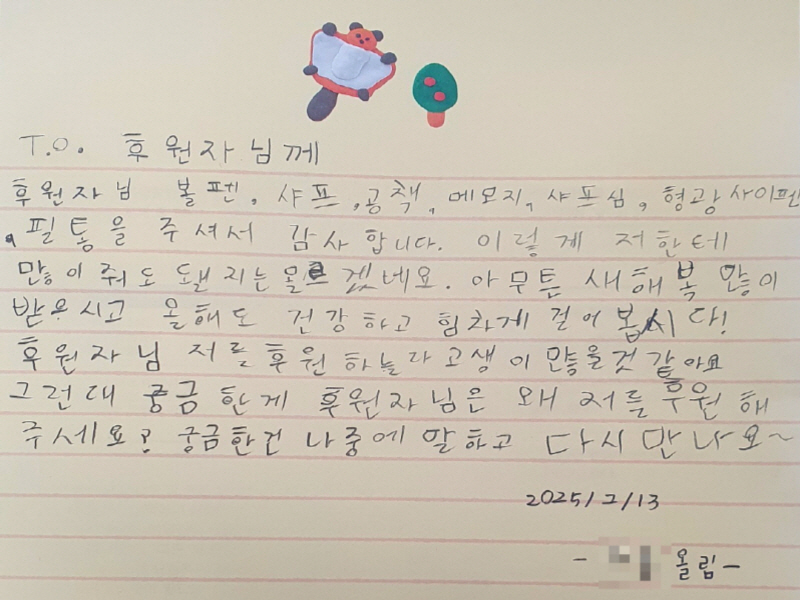 T.O. 후원자님께
후원자님 볼펜, 샤프, 공책, 메모지, 샤프심, 형광사이펜
, 필통을 주셔서 감사합니다. 이렇게 저한테
많이 줘도 됄지는 몰르겠네요. 아무튼 새해 복 많이
받으시고 올해도 건강하고 힘차게 걸어 봅시다!
후원자님 저를 후원 하늘라 고생이 많을것 같아요
그런대 궁금한게 후원자님은 왜 저를 후원 해
주세요? 궁금한건 나중에 말하고 다시 만나요~
2025/2/13
- 올림-